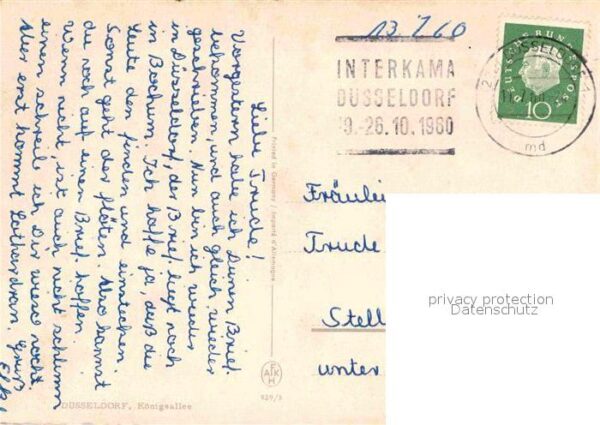 13.7.60
INTERKAMA
DÜSSELDORF
19.-26.10.1960
DÜSSELDORF
md
DEUTSCHE BUNDESPOST
10
Liebe Trude!
Vorgestern habe ich Deinen Brief
bekommen, und auch gleich wieder
geschrieben. Nun bin ich wieder
in Düsseldorf, der Brief liegt noch
in Bochum. Ich hoffe ja, daß die
Leute den finden und einstecken.
Sonst geht der flöten. Also kannst
du noch auf einen Brief hoffen.
Wenn nicht, ist auch nicht schlimm
einen schreib ich Dir wieso nocht.
Aber erst kommt Lothar dran. Gruß
Elke
Printed in Germany / Importé d'Allemagne
Fräulein
Trude
Stell
unter
privacy protection
Datenschutz
AFKH
929/3
DÜSSELDORF, Königsallee